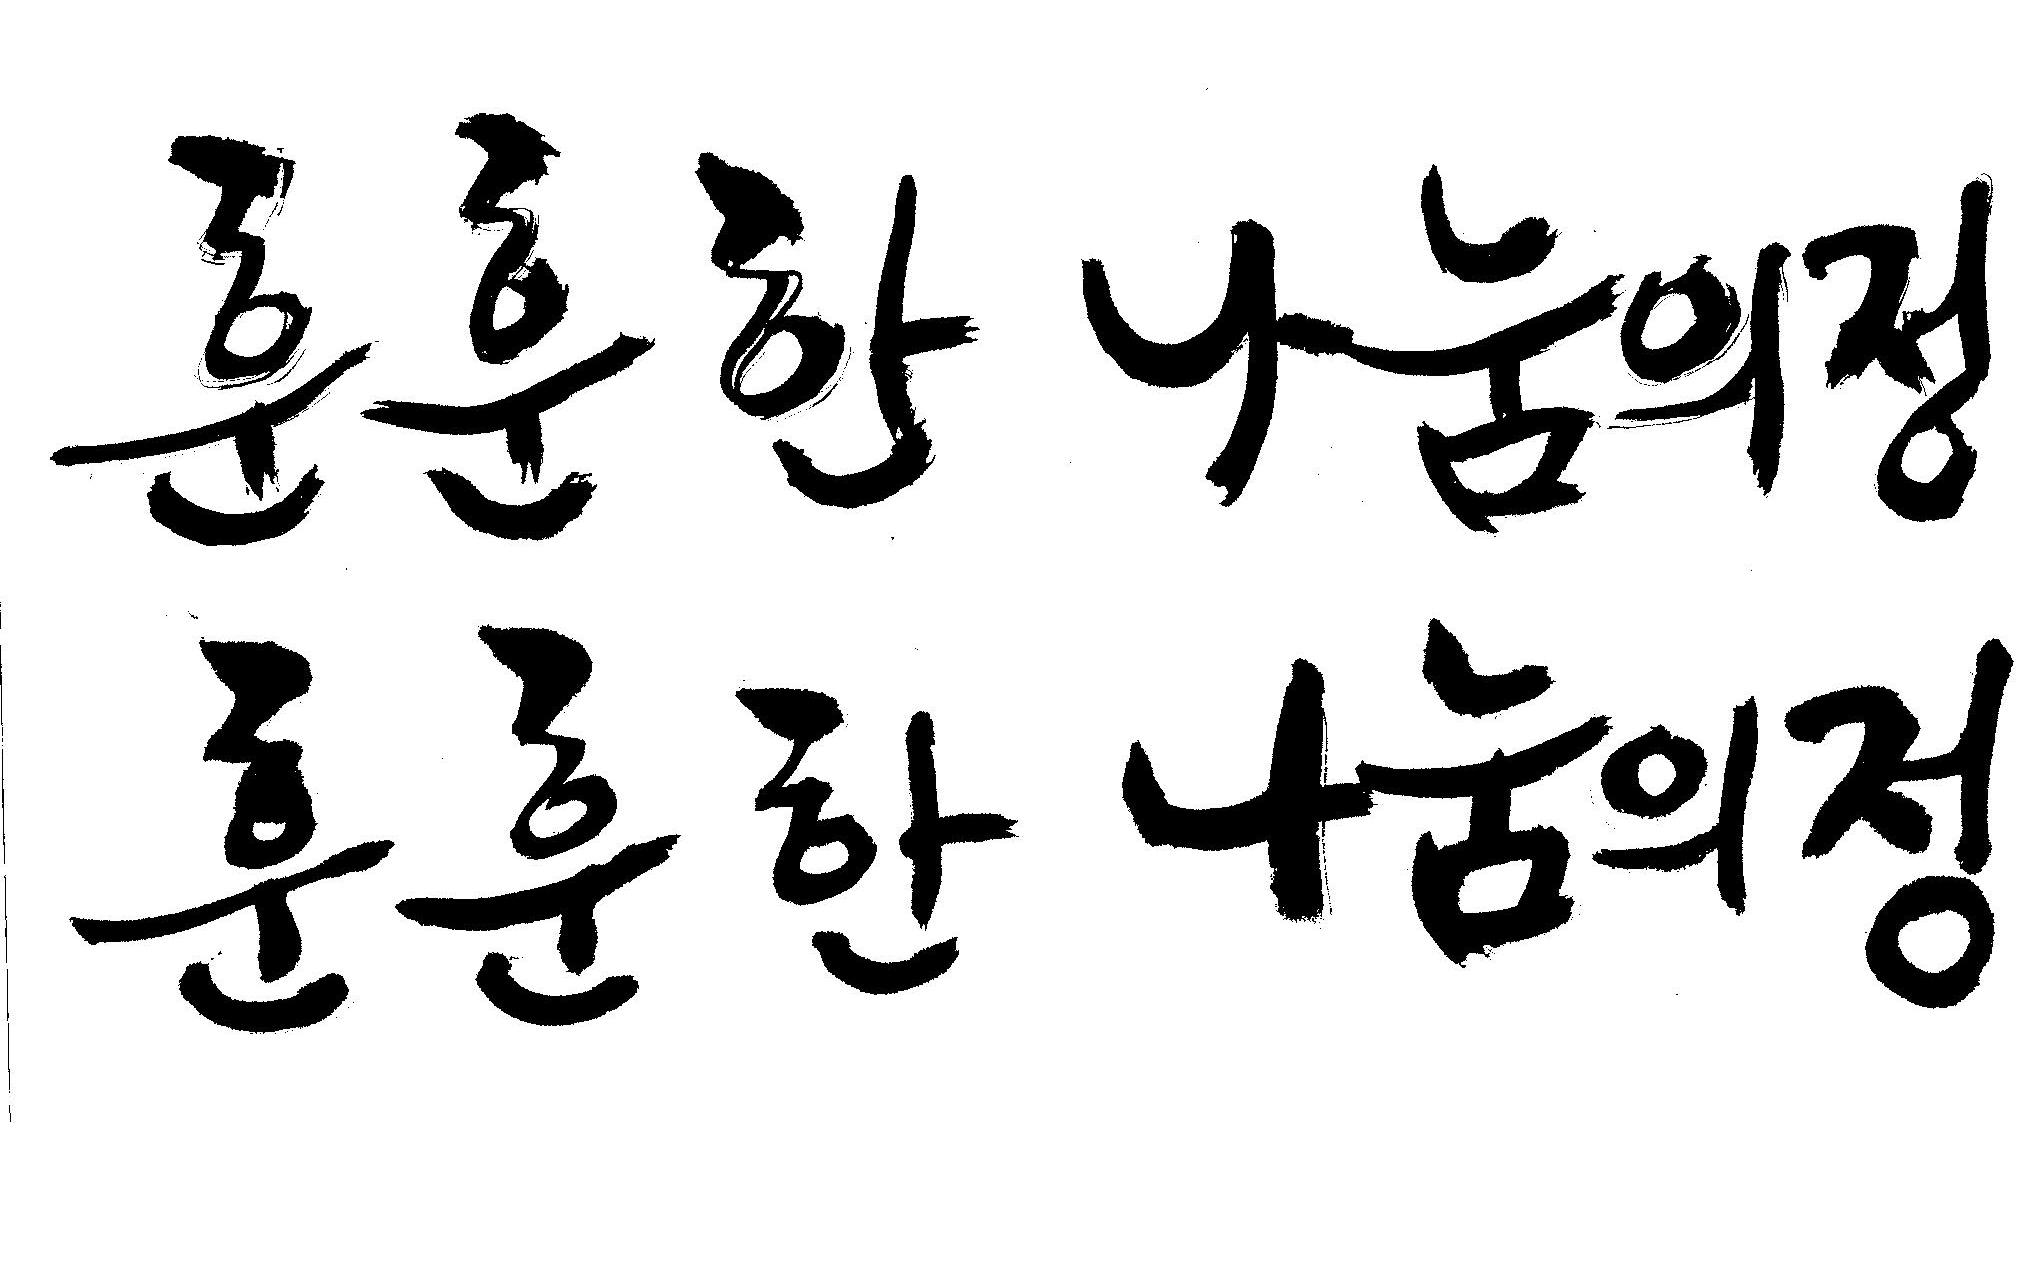 훈훈한 나눔의정
훈훈한 나눔의정